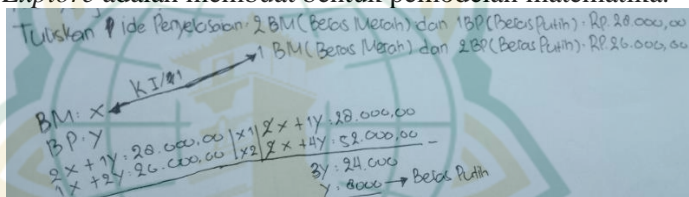 Explore adalah membuat bentuk pemodelan matematika.
Tuliskan ide Penyelesaian. 2 BM (Beras Merah) dan 1BP (Beras Putih). RP. 28.000,00
1 BM (Beras Merah) dan 2BP (Beras Putih). RP. 26.000,00
BM: X
BP: Y
2x + 1y: 28.000,00 |x1| 2x + 1y: 28.000,00
1x + 2y: 26.000,00 |x2| 2x + 4y: 52.000,00 -
3y: 24.000
y: 8000 → Beras Putih